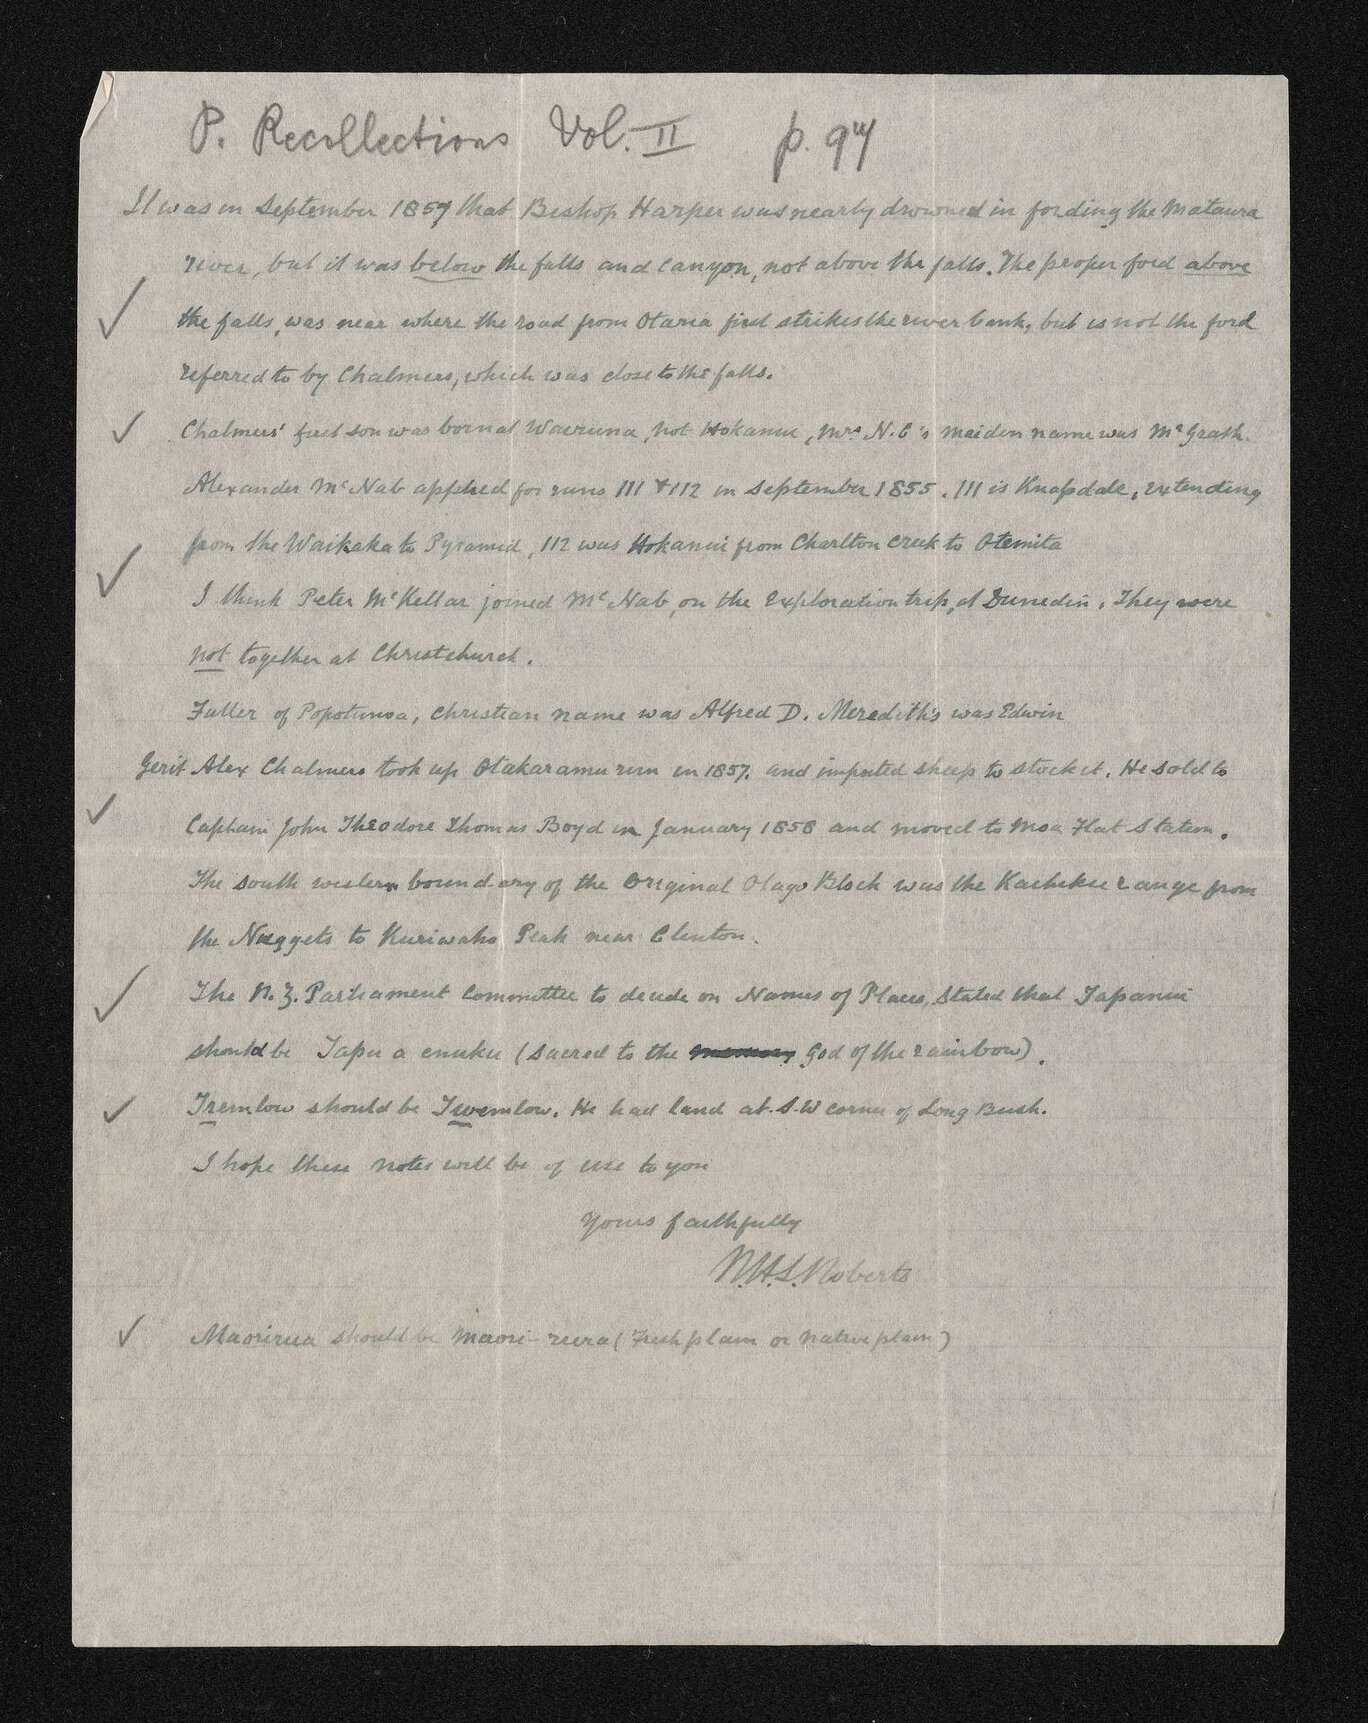 P. Recollections Vol. II p. 94
It was in September 1859 that Bishop Harper was nearly drowned in fording the Mataura
river, but it was below the falls and canyon, not above the falls. The proper ford above
the falls, was near where the road from Otaria first strikes the river bank, but is not the ford
referred to by Chalmers, which was close to the falls.
Chalmers' first son was born at Wairuna, not Hokanui, Mrs N.C's maiden name was McGrath.
Alexander McNab applied for runs 111 & 112 in September 1855. 111 is Knapdale, extending
from the Waikaka to Pyramid, 112 was Hokanui from Charlton Creek to Otamita
I think Peter McKellar joined McNab, on the Exploration trip, at Dunedin. They were
not together at Christchurch.
Fuller of Popotunoa, Christian name was Alfred D. Meredith's was Edwin
Gerit Alex Chalmers took up Otakaramu run in 1857. and imported sheep to stock it. He sold to
Captain John Theodore Thomas Boyd in January 1858 and moved to Moa Flat Station.
The south western boundary of the Original Otago Block was the Kaihiku range from
the Nuggets to Kuriwaho Peak near Clinton.
The N.Z. Parliament Committee to decide on Names of Places, Stated that Tapanui
should be Tapu a enuku (sacred to the memory God of the rainbow).
Tremlow should be Twemlow. He had land at S.W corner of Long Bush.
I hope these notes will be of use to you
Yours faithfully
W.H.S. Roberts
Maorirua should be Maori-raera (Fresh plain or Native plain)